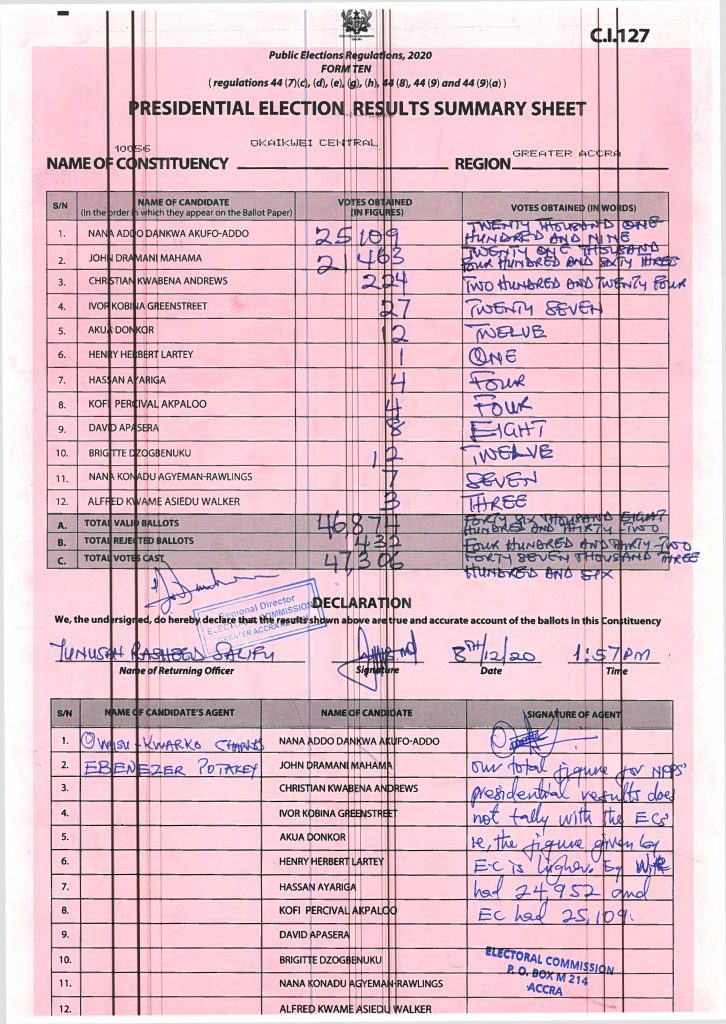 C.I.127
Public Elections Regulations, 2020
FORM TEN
( regulations 44 (7)(c), (d), (e), (g), (h), 44 (8), 44 (9) and 44 (9)(a) )
PRESIDENTIAL ELECTION RESULTS SUMMARY SHEET
10056 OKAIKWEI CENTRAL GREATER ACCRA
NAME OF CONSTITUENCY REGION
S/N NAME OF CANDIDATE (In the order in which they appear on the Ballot Paper) VOTES OBTAINED (IN FIGURES) VOTES OBTAINED (IN WORDS)
1. NANA ADDO DANKWA AKUFO-ADDO 25109 TWENTY THOUSAND ONE HUNDRED AND NINE
2. JOHN DRAMANI MAHAMA 21463 TWENTY ONE THOUSAND FOUR HUNDRED AND SIXTY THREE
3. CHRISTIAN KWABENA ANDREWS 224 TWO HUNDRED AND TWENTY FOUR
4. IVOR KOBINA GREENSTREET 27 TWENTY SEVEN
5. AKUA DONKOR 12 TWELVE
6. HENRY HERBERT LARTEY 1 ONE
7. HASSAN AYARIGA 4 FOUR
8. KOFI PERCIVAL AKPALOO 4 FOUR
9. DAVID APASERA 8 EIGHT
10. BRIGITTE DZOGBENUKU 12 TWELVE
11. NANA KONADU AGYEMAN-RAWLINGS 7 SEVEN
12. ALFRED KWAME ASIEDU WALKER 3 THREE
A. TOTAL VALID BALLOTS 46,874 FORTY SIX THOUSAND EIGHT HUNDRED AND THIRTY-TWO
B. TOTAL REJECTED BALLOTS 432 FOUR HUNDRED AND THIRTY-TWO
C. TOTAL VOTES CAST 47,306 FORTY SEVEN THOUSAND THREE HUNDRED AND SIX
Regional Director
ELECTORAL COMMISSION
GREATER ACCRA REGION
DECLARATION
We, the undersigned, do hereby declare that the results shown above are true and accurate account of the ballots in this Constituency
YUNUSAH RASHEED SALIFU 8TH/12/20 1:57PM
Name of Returning Officer Signature Date Time
S/N NAME OF CANDIDATE'S AGENT NAME OF CANDIDATE SIGNATURE OF AGENT
1. OWUSU-KWARKO CHARLES NANA ADDO DANKWA AKUFO-ADDO
2. EBENEZER POTAKEY JOHN DRAMANI MAHAMA our total figure for NPPS'
3. CHRISTIAN KWABENA ANDREWS presidential results does
4. IVOR KOBINA GREENSTREET not tally with the ECs'
5. AKUA DONKOR ie, the figure given by
6. HENRY HERBERT LARTEY EC is higher. By
7. HASSAN AYARIGA had 24,952 and
8. KOFI PERCIVAL AKPALOO EC had 25,109.
9. DAVID APASERA
10. BRIGITTE DZOGBENUKU
11. NANA KONADU AGYEMAN-RAWLINGS
12. ALFRED KWAME ASIEDU WALKER
ELECTORAL COMMISSION
P. O. BOX M 214
ACCRA